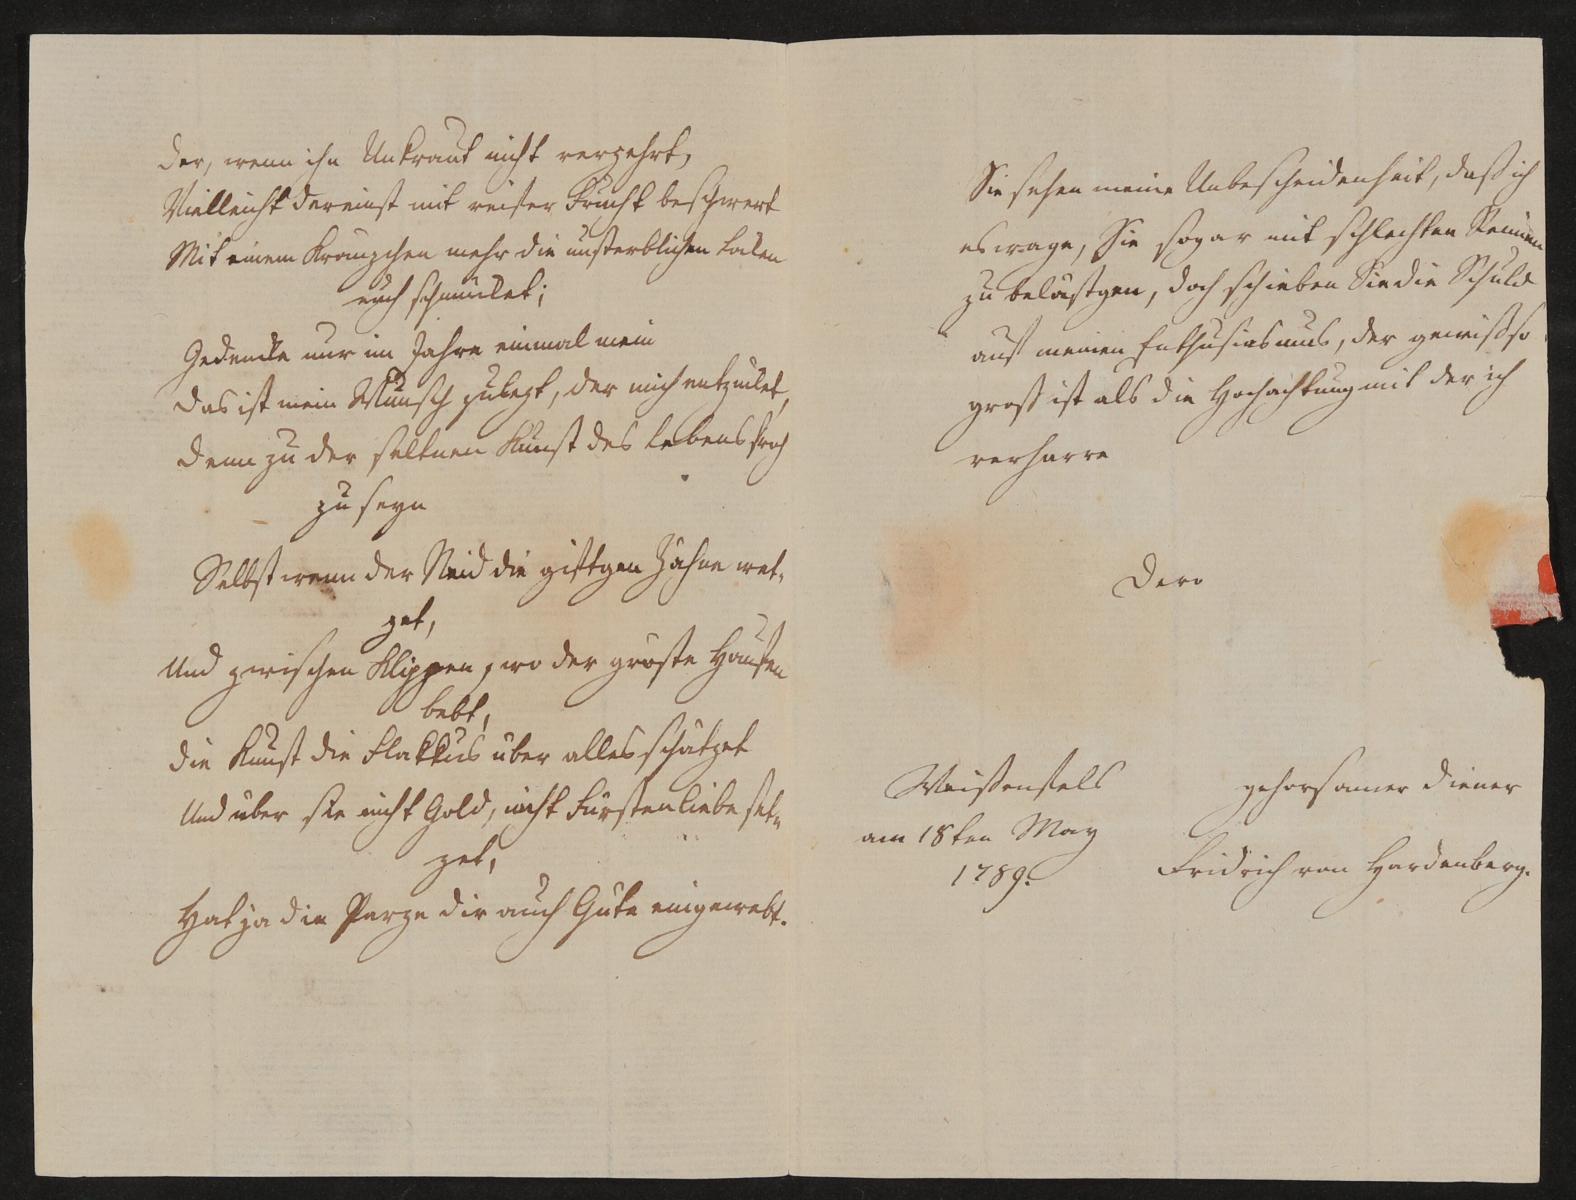 der, wenn ihn Unkraut nicht verzehrt,
Vielleicht dereinst mit reifer Frucht beschwert
Mit einem Kränzchen mehr die unsterblichen Locken
euch schmücket;
Gedencke nur im Jahre einmal mein
das ist mein Wunsch zulezt, der mich entzücket,
denn zu der seltnen Kunst des Lebens froh
zu seyn
Selbst wenn der Neid die giftgen Zähne wet-
zet,
Und zwischen Klippen, wo der gröste Haufen
bebt,
die Kunst die Flakkus über alles schätzet
Und über sie nicht Gold, nicht Fürstenliebe set-
zet,
Hat ja die Parze dir auch Güte eingewebt.
Sie sehen meine Unbescheidenheit, daß ich
es wage, Sie sogar mit schlechten Reimen
zu belästgen, doch schieben Sie die Schuld
auf meinen Enthusiasmus, der gewiß so
groß ist als die Hochachtung mit der ich
verharre
Dero
Weißenfels
gehorsamer Diener
am 18ten May
1789.
Fridrich von Hardenberg.